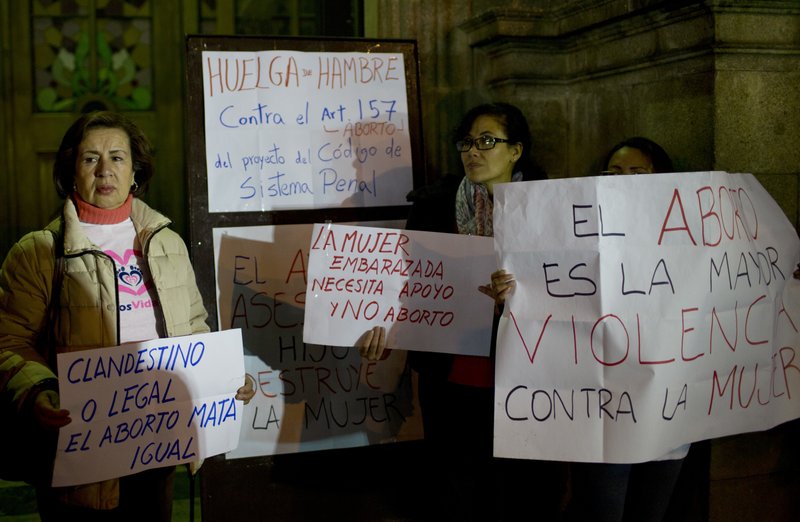 HUELGA DE HAMBRE
Contra el Art. 157
(ABORTO)
del proyecto del Código de
Sistema Penal
EL
HIJO
DESTRUYE
LA MUJER
LA MUJER
EMBARAZADA
NECESITA APOYO
Y NO ABORTO
EL ABORO
ES LA MAYOR
VIOLENCA
CONTRA LA MUJER
CLANDESTINO
O LEGAL
EL ABORTO MATA
IGUAL